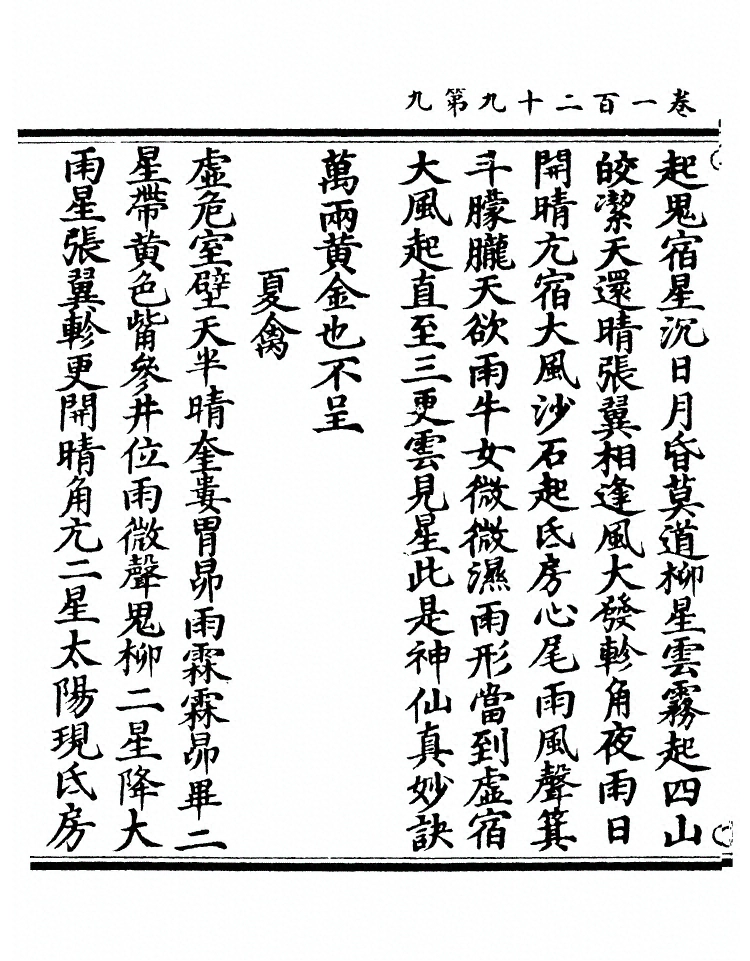 卷一百二十九第九
起鬼宿星沉日月昏莫道柳星雲霧起四山
皎潔天還晴張翼相逢風大發軫角夜雨日
開晴亢宿大風沙石起氐房心尾雨風聲箕
斗朦朧天欲雨牛女微微濕雨形當到虛宿
大風起直至三更雲見星此是神仙真妙訣
萬兩黃金也不呈
夏禽
虛危室壁天半晴奎婁胃昴雨霖霖昴畢二
星帶黃色觜參井位雨微聲鬼柳二星降大
雨星張翼軫更開晴角亢二星太陽現氐房